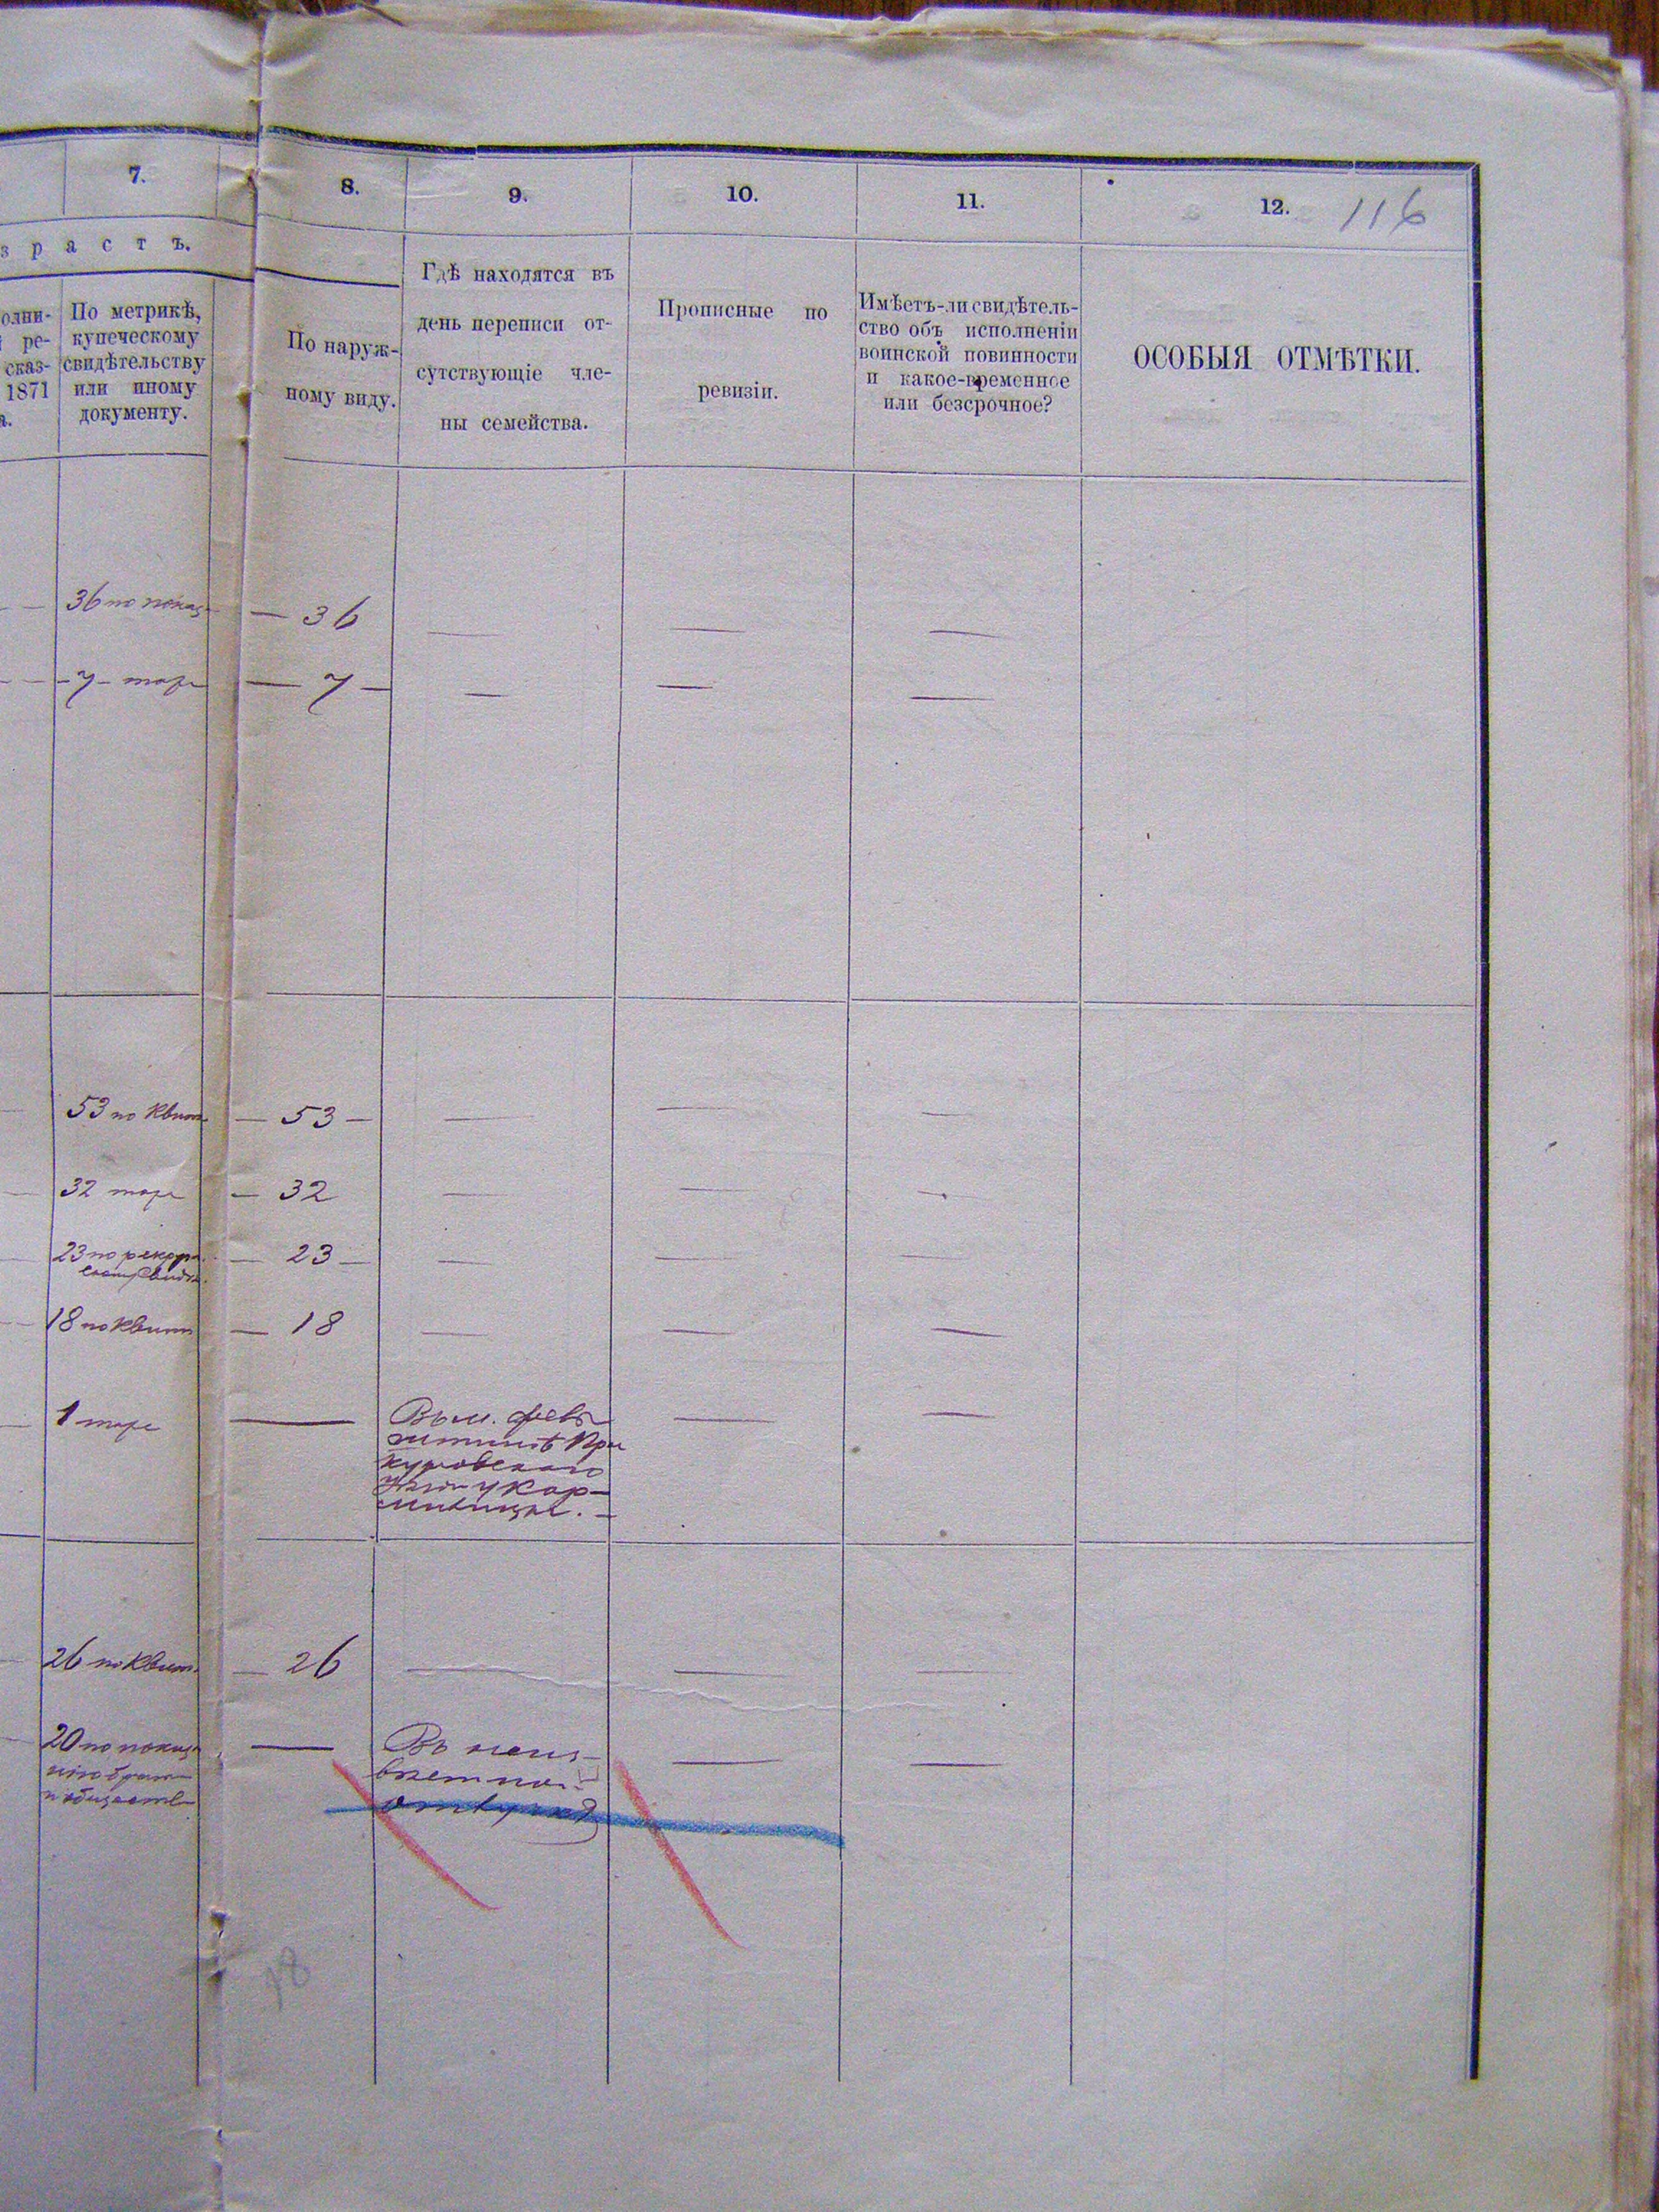 7.
8.
9.
10.
11.
12.
116
з р а с т ъ.
олни-
ре-
сказ-
1871
а.
По метрикѣ,
купеческому
свидѣтельству
или иному
документу.
По наруж-
ному виду.
Гдѣ находятся въ
день переписи от-
сутствующіе чле-
ны семейства.
Прописные по
ревизіи.
Имѣетъ-ли свидѣтель-
ство объ исполненіи
воинской повинности
и какое-временное
или безсрочное?
ОСОБЫЯ ОТМѢТКИ.
36 по показ
36
7
7
53 по квит
53
32
32
23 по
23
18 по квит
18
1
Въ м.
у кор-
милицы.
26 по квит
26
20 по показ
Въ неиз-
вѣстной
отлучкѣ
18